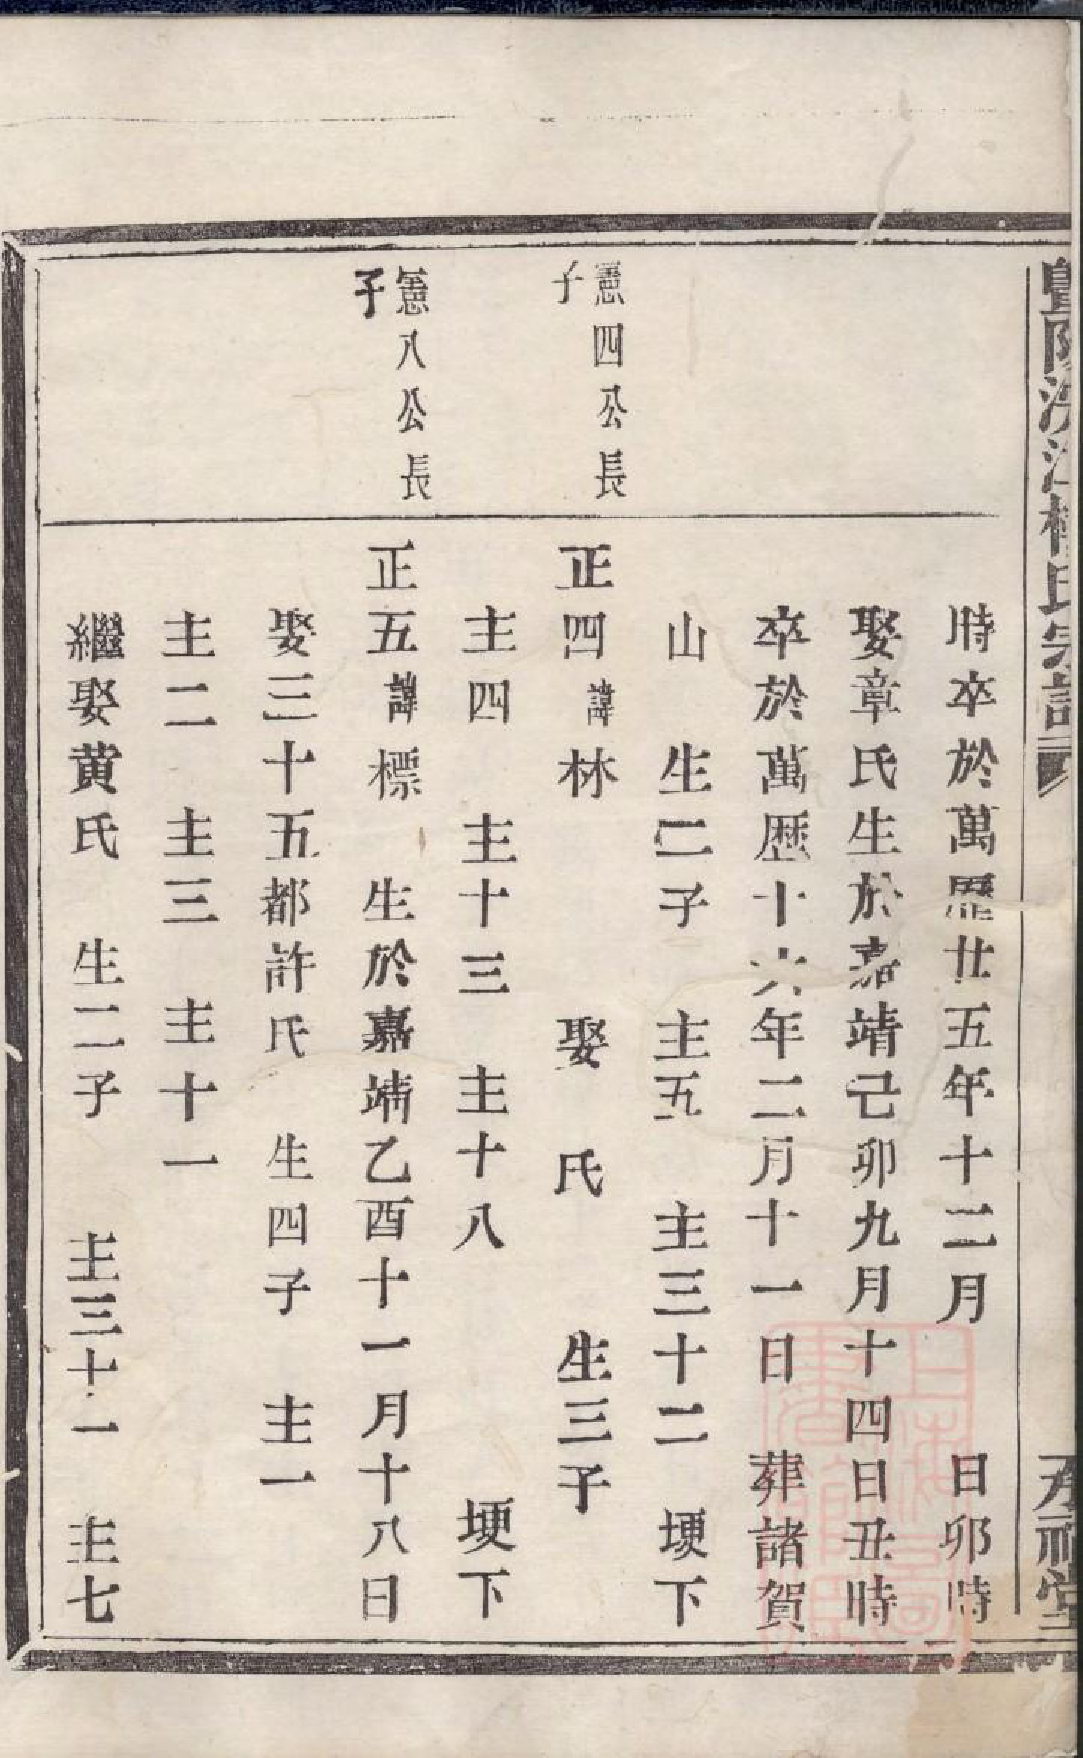 暨陽
氏宗譜
時卒於萬歷廿五年十二月 日卯時
娶章氏生於嘉靖己卯九月十四日丑時
卒於萬歷十六年二月十一日 葬諸賀
山 生二子 主五 主三十二 埂下
憲四公長
子
正四諱林 娶 氏 生三子
主四 主十三 主十八 埂下
憲八公長
子
正五諱標 生於嘉靖乙酉十一月十八日
娶三十五都許氏 生四子 主一
主二 主三 主十一
繼娶黃氏 生二子 主三十一 主七